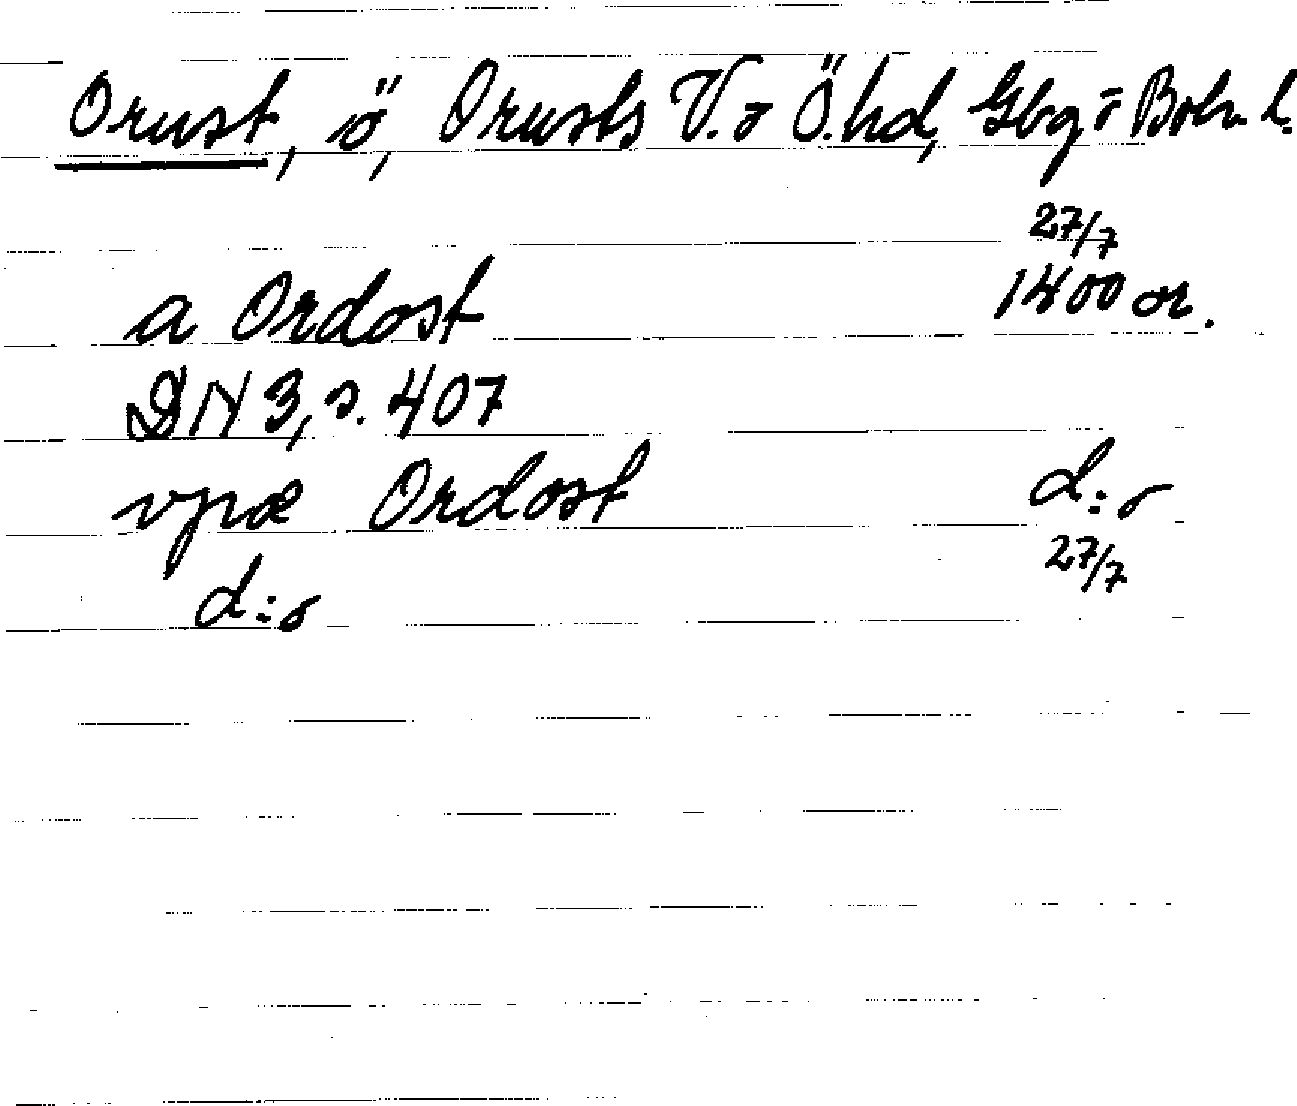 Orust, ö, Orusts V. o Ö. hd, Gbg o Boh. l.
27/7
a Ordost 1400 or.
DN 3, s. 407
vpæ Ordost d:o
27/7
d:o